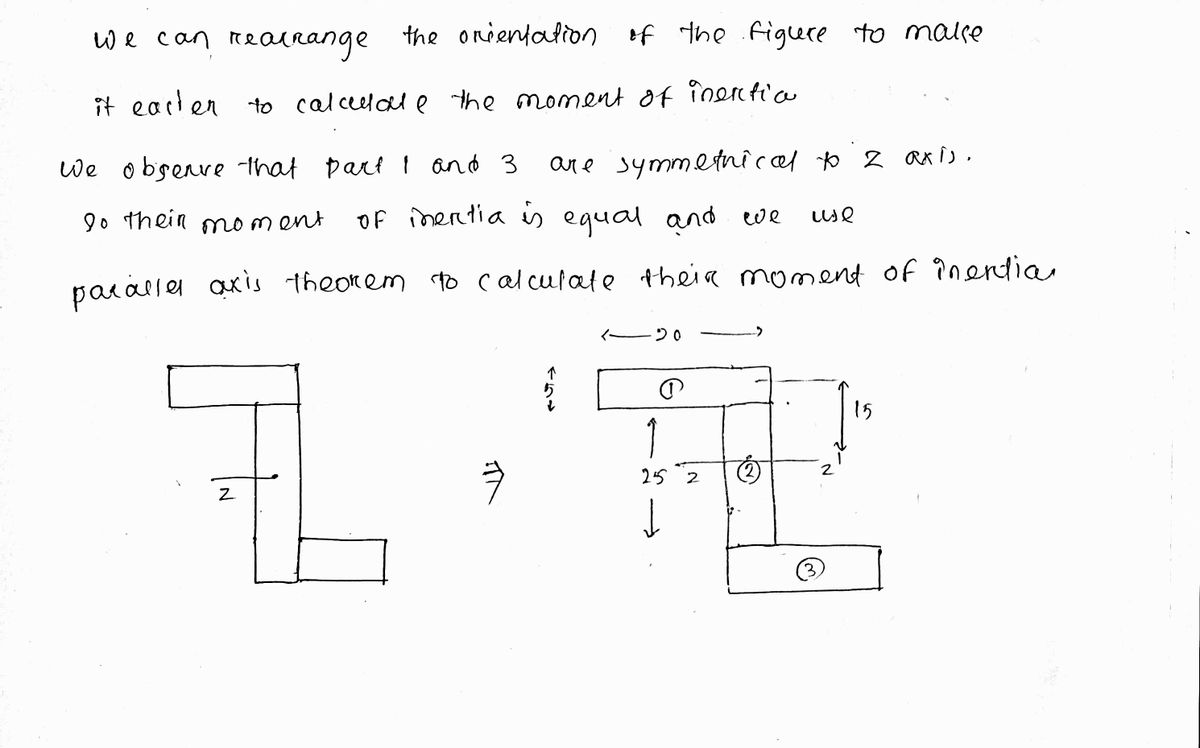 we can rearrange the orientation of the figure to make
it easier to calculate the moment of inertia
we observe that part 1 and 3 are symmetrical to z axis.
so their moment of inertia is equal and we use
parallel axis theorem to calculate their moment of inertia
20
5
1
15
25
z
2
z'
z
3